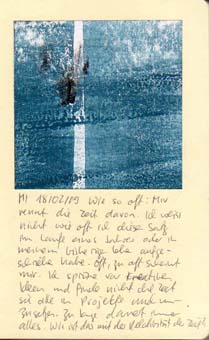 Mi 18/02/09 Wie so oft: Mir
rennt die Zeit davon. Ich weiss
nicht wie oft ich diese Satz
im Laufe eines Jahres oder in
meinem bisherigen Leben aufge-
schrieben habe. Oft, zu oft scheint
mir. Ich sprühe vor kreativen
Ideen und finde nicht die Zeit
sie alle in Projekte und um-
zusetzen. Zu
alles. Wie ist das mit der Relativität der Zeit?